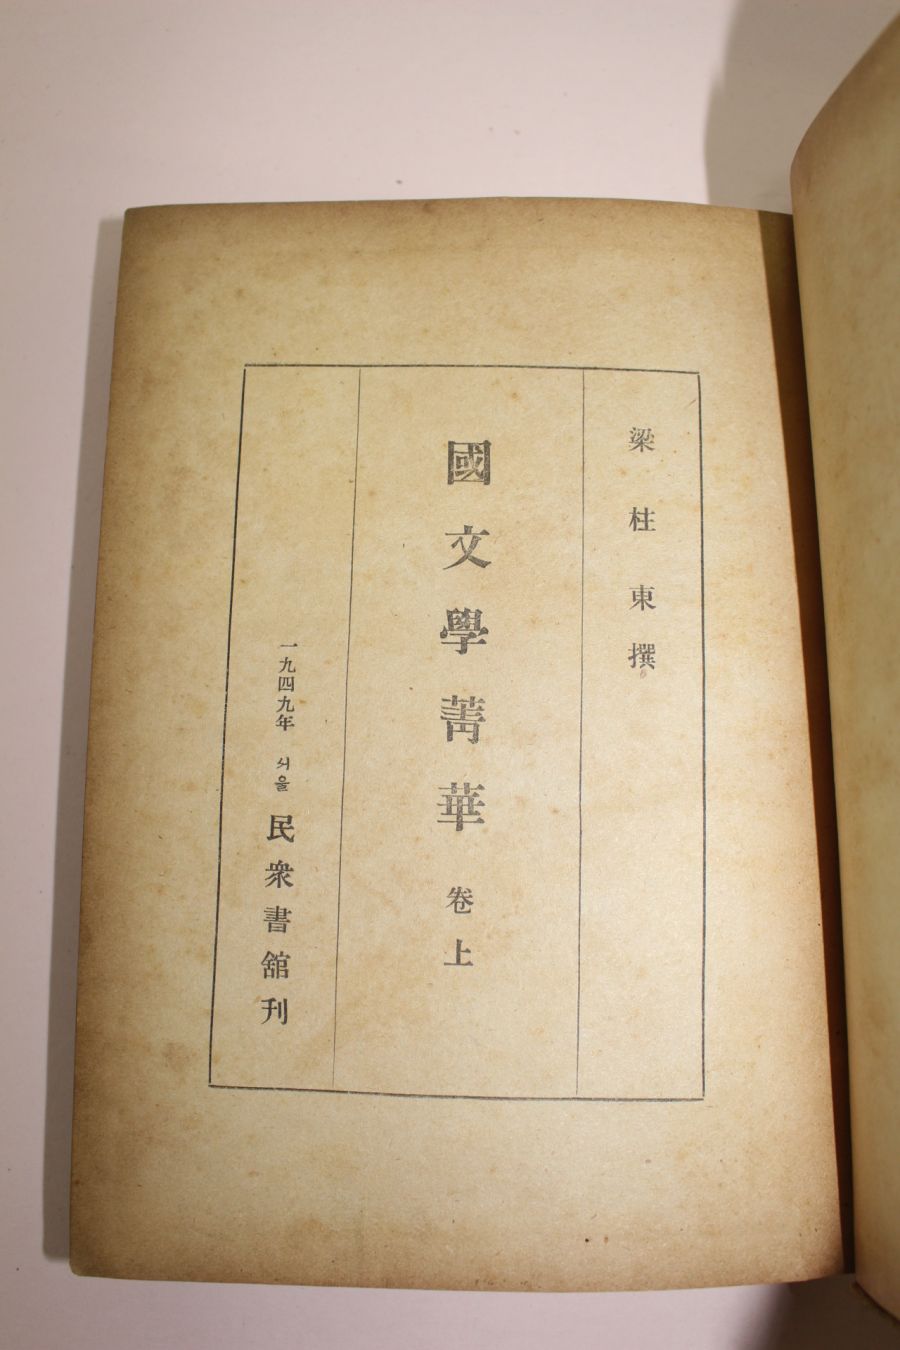 梁柱東撰
國文學菁華 卷上
一九四九年 서울 民衆書舘刊